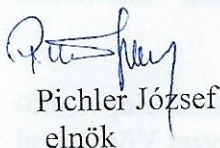 Pichler József
elnök